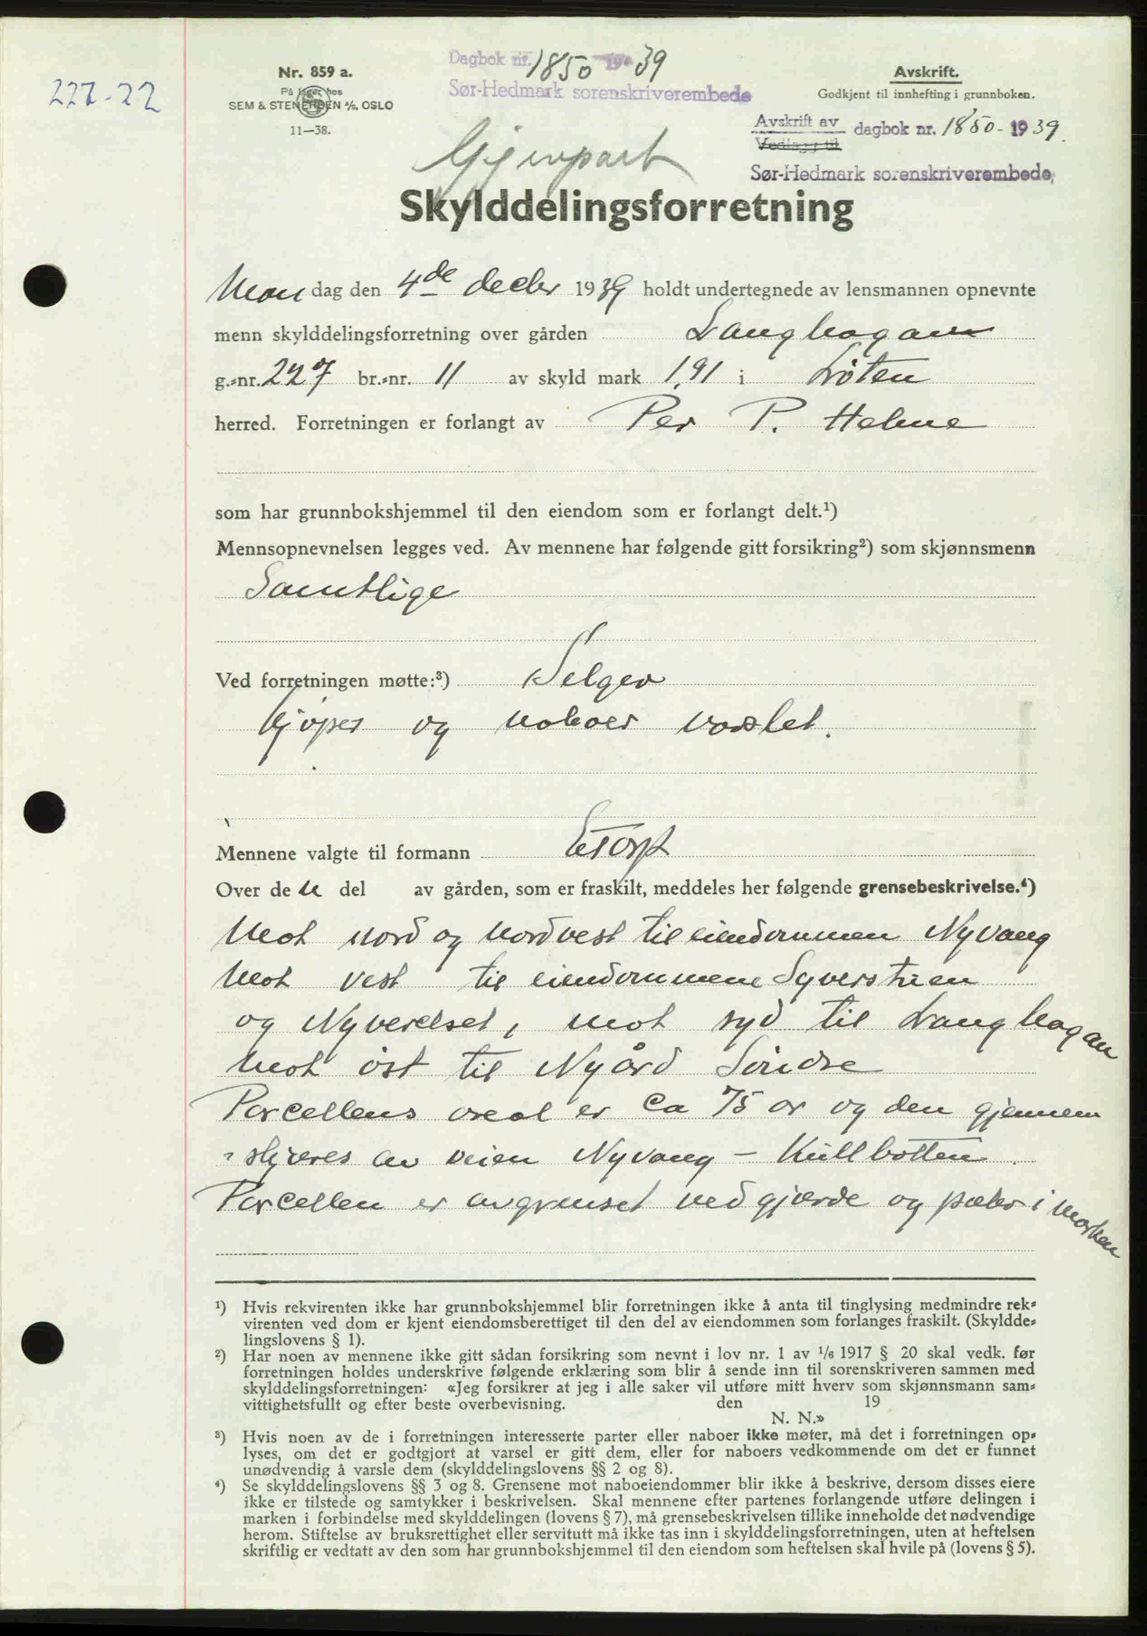 227-22
Nr. 859 a.
På lager hos
SEM & STENERSEN A/S, OSLO
11—38.
Dagbok nr. 1850 19 39
Sør-Hedmark sorenskriverembede
Avskrift.
Godkjent til innhefting i grunnboken.
Avskrift av
Vedlagg til
dagbok nr. 1850-1939.
Sør-Hedmark sorenskriverembede,
Gjenpart
Skylddelingsforretning
Mandag den 4de decbr 1939 holdt undertegnede av lensmannen opnevnte
menn skylddelingsforretning over gården Langhagan
g.-nr. 227 br.-nr. 11 av skyld mark 1,91 i Løten
herred. Forretningen er forlangt av Per P. Helme
som har grunnbokshjemmel til den eiendom som er forlangt delt.¹)
Mennsopnevnelsen legges ved. Av mennene har følgende gitt forsikring²) som skjønnsmenn
Samtlige
Ved forretningen møtte:³) Selger
kjøper og naboer varslet.
Mennene valgte til formann E Torp
Over den del av gården, som er fraskilt, meddeles her følgende grensebeskrivelse.⁴)
Mot nord og nordvest til eiendommen Nyvang
Mot vest til eiendommene Syverstuen
og Nyverelset, mot syd til Langhagan
Mot øst til Nygård Søndre
Parcellens areal er ca 75 ar og den gjennem
skjæres av veien Nyvang – Kullbotten.
Parcellen er avgrenset ved gjærde og pæler i marken
¹) Hvis rekvirenten ikke har grunnbokshjemmel blir forretningen ikke å anta til tinglysing medmindre rek-
virenten ved dom er kjent eiendomsberettiget til den del av eiendommen som forlanges fraskilt. (Skyldde-
lingslovens § 1).
²) Har noen av mennene ikke gitt sådan forsikring som nevnt i lov nr. 1 av 1/6 1917 § 20 skal vedk. før
forretningen holdes underskrive følgende erklæring som blir å sende inn til sorenskriveren sammen med
skylddelingsforretningen: «Jeg forsikrer at jeg i alle saker vil utføre mitt hverv som skjønnsmann sam-
vittighetsfullt og efter beste overbevisning. den 19
N. N.»
³) Hvis noen av de i forretningen interesserte parter eller naboer ikke møter, må det i forretningen op-
lyses, om det er godtgjort at varsel er gitt dem, eller for naboers vedkommende om det er funnet
unødvendig å varsle dem (skylddelingslovens §§ 2 og 8).
⁴) Se skylddelingslovens §§ 3 og 8. Grensene mot naboeiendommer blir ikke å beskrive, dersom disses eiere
ikke er tilstede og samtykker i beskrivelsen. Skal mennene efter partenes forlangende utføre delingen i
marken i forbindelse med skylddelingen (lovens § 7), må grensebeskrivelsen tillike inneholde det nødvendige
herom. Stiftelse av bruksrettighet eller servitutt må ikke tas inn i skylddelingsforretningen, uten at heftelsen
skriftlig er vedtatt av den som har grunnbokshjemmel til den eiendom som heftelsen skal hvile på (lovens § 5).